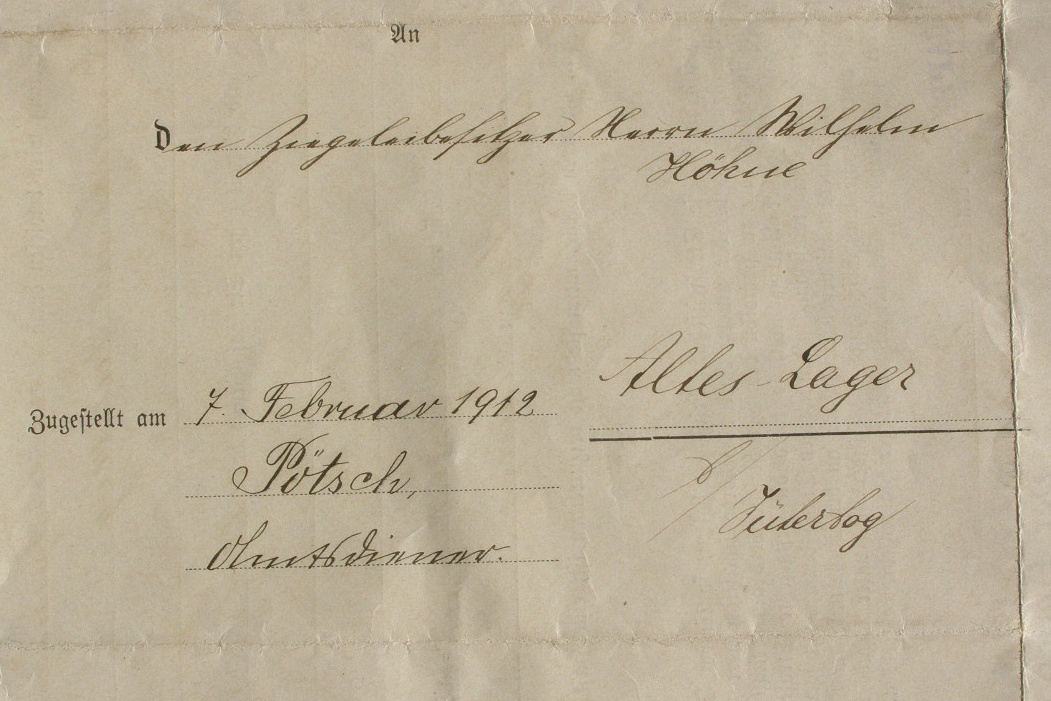 An
Den Ziegeleibesitzer Herrn Wilhelm
Höhne
Altes Lager
Zugestellt am 7. Februar 1912
Pötsch,
b/ Jüterbog
Amtsdiener.